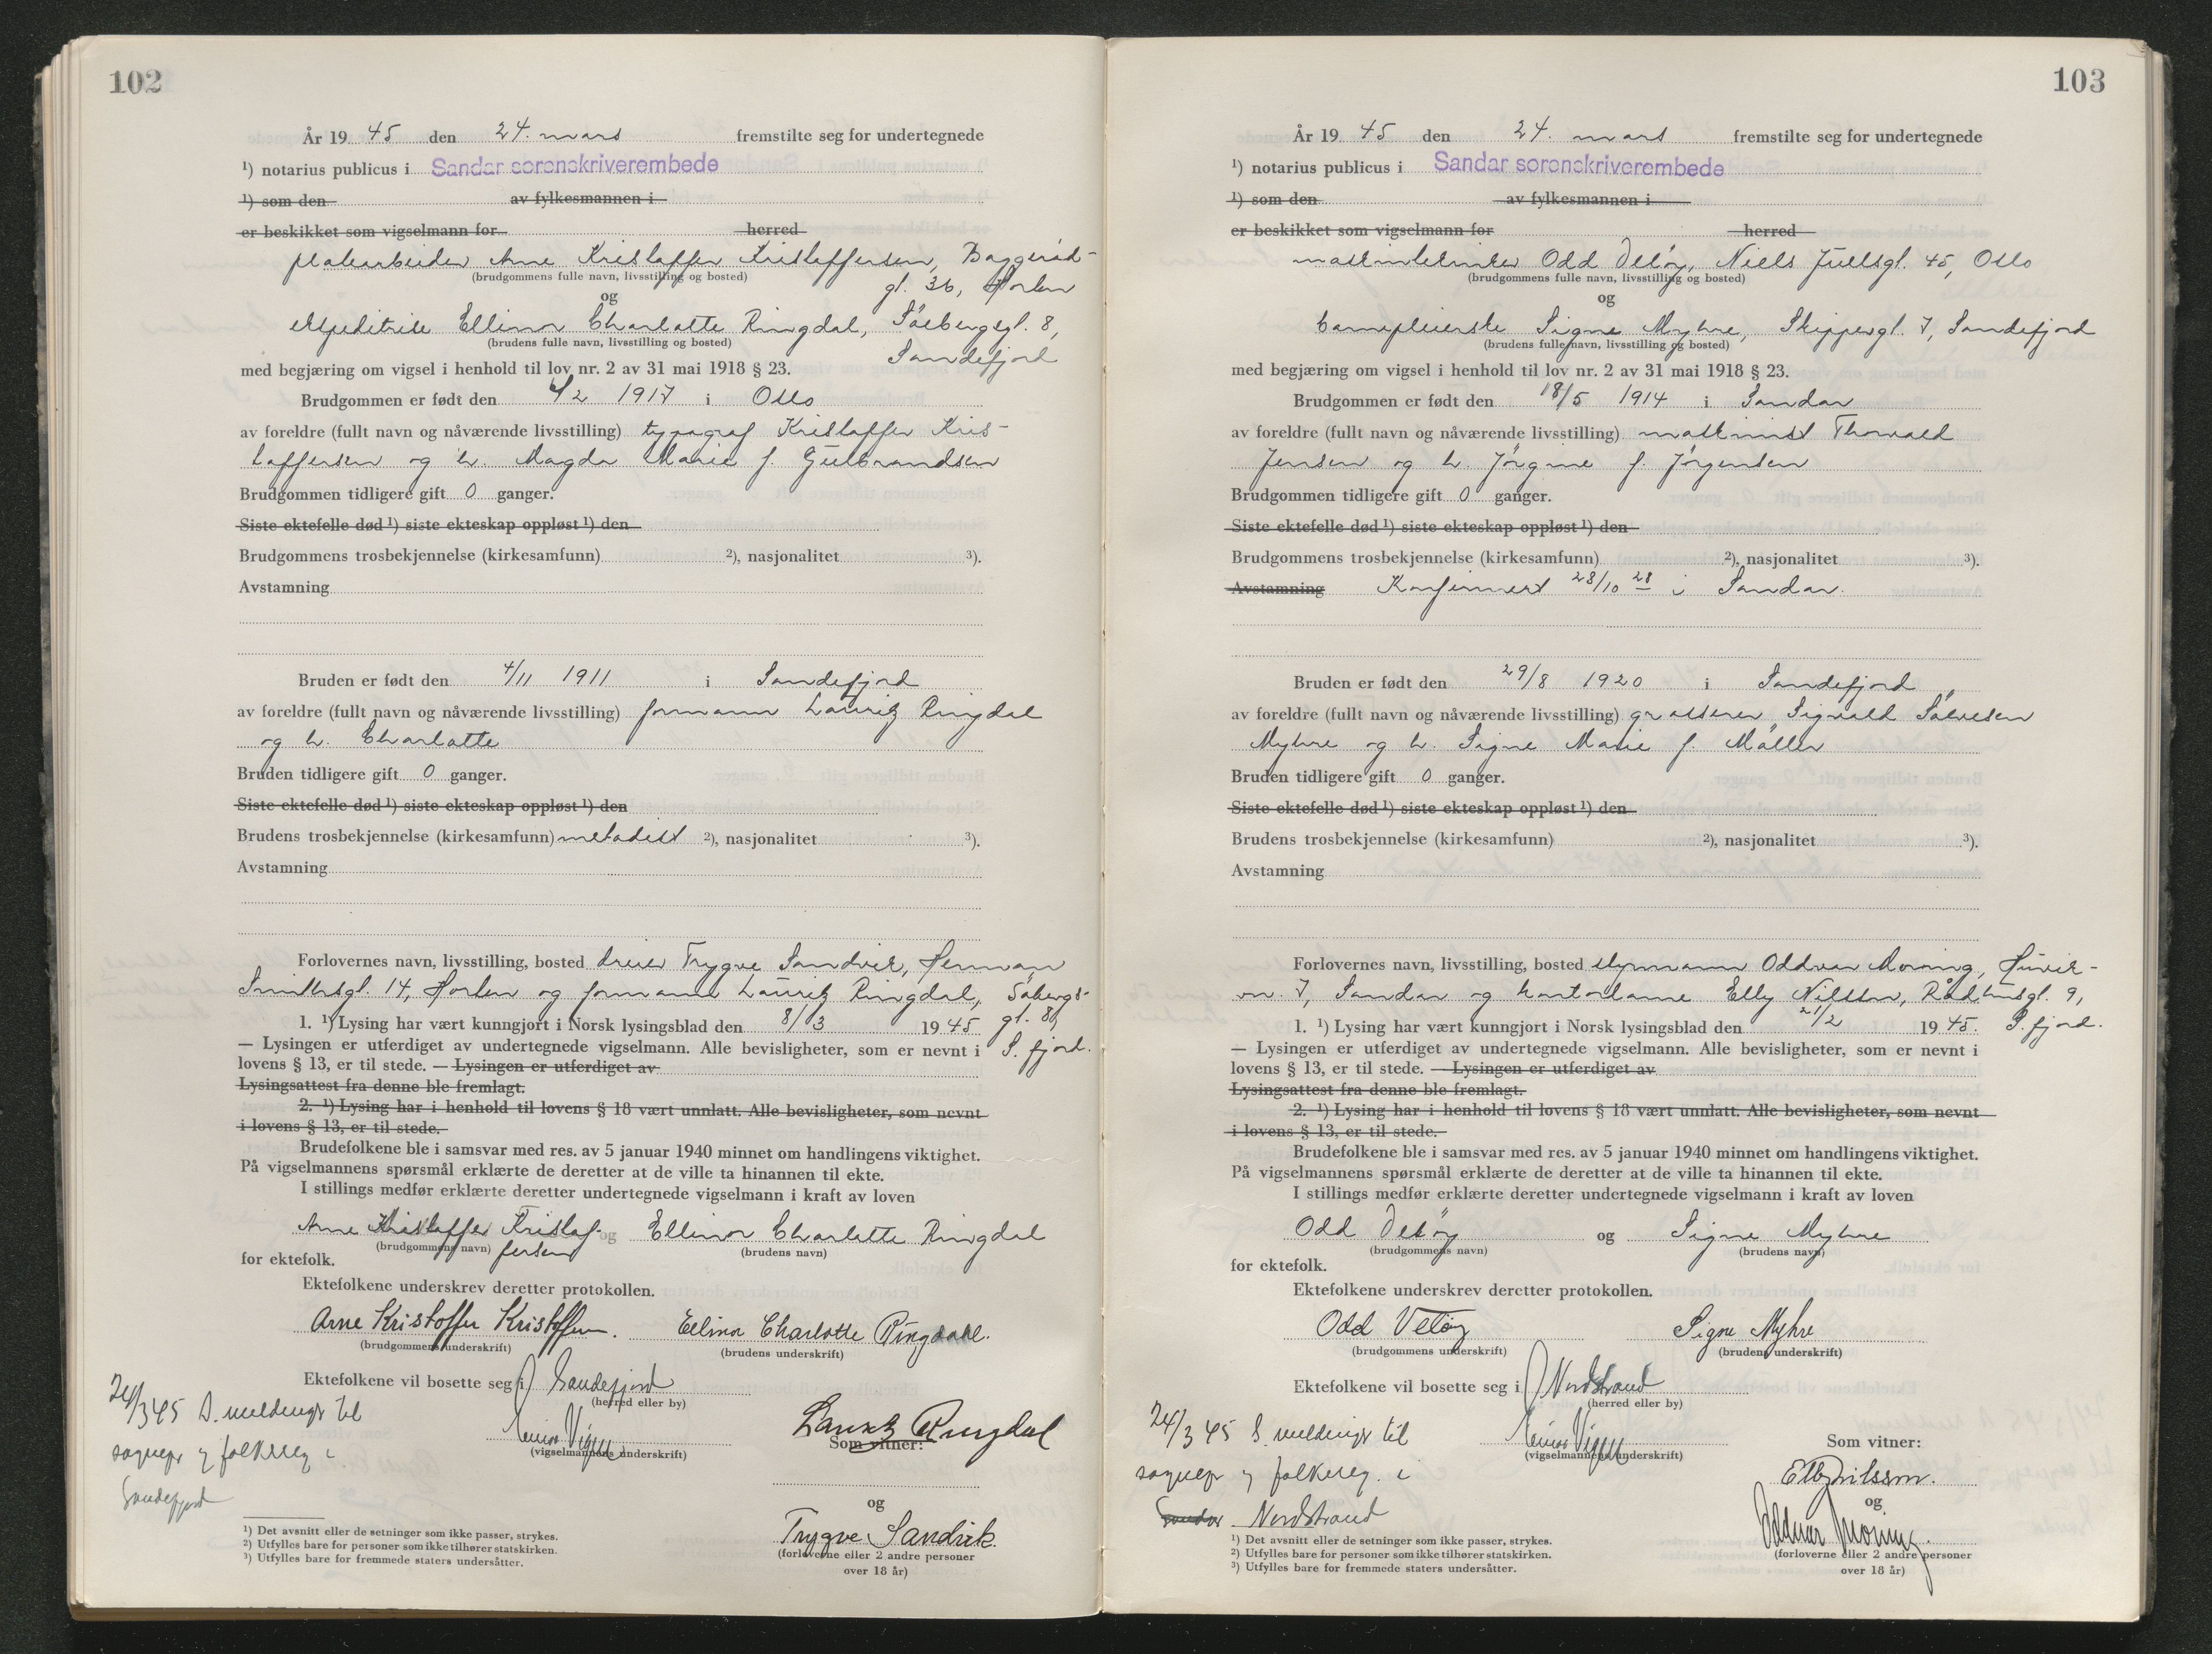 102
År 19 45 den 24. mars fremstilte seg for undertegnede
¹) notarius publicus i Sandar sorenskriverembede
¹) som den av fylkesmannen i
er beskikket som vigselmann for herred
platearbeider Arne Kristoffer Kristoffersen, Baggerød-
(brudgommens fulle navn, livsstilling og bosted)
gt. 36, Horten
og
ekspeditrise Ellinor Charlotte Ringdal, Såebergsgt. 8,
(brudens fulle navn, livsstilling og bosted)
Sandefjord
med begjæring om vigsel i henhold til lov nr. 2 av 31 mai 1918 § 23.
Brudgommen er født den 4/2 1917 i Oslo
av foreldre (fullt navn og nåværende livsstilling) typograf Kristoffer Kris-
toffersen og h. Magda Marie f. Gulbrandsen
Brudgommen tidligere gift 0 ganger.
Siste ektefelle død ¹) siste ekteskap oppløst ¹) den
Brudgommens trosbekjennelse (kirkesamfunn) ²), nasjonalitet ³).
Avstamning
Bruden er født den 4/11 1911 i Sandefjord
av foreldre (fullt navn og nåværende livsstilling) formann Lauritz Ringdal
og h. Charlotte
Bruden tidligere gift 0 ganger.
Siste ektefelle død ¹) siste ekteskap oppløst ¹) den
Brudens trosbekjennelse (kirkesamfunn) metodist ²), nasjonalitet ³).
Avstamning
Forlovernes navn, livsstilling, bosted dreier Trygve Sandvik, Herman
Smithsgt. 14, Horten og formann Lauritz Ringdal, Såbergs-
1. ¹) Lysing har vært kunngjort i Norsk lysingsblad den 8/3 1945 gt. 8,
— Lysingen er utferdiget av undertegnede vigselmann. Alle bevisligheter, som er nevnt i S. fjord.
lovens § 13, er til stede. — Lysingen er utferdiget av
Lysingsattest fra denne ble fremlagt.
2. ¹) Lysing har i henhold til lovens § 18 vært unnlatt. Alle bevisligheter, som nevnt
i lovens § 13, er til stede.
Brudefolkene ble i samsvar med res. av 5 januar 1940 minnet om handlingens viktighet.
På vigselmannens spørsmål erklærte de deretter at de ville ta hinannen til ekte.
I stillings medfør erklærte deretter undertegnede vigselmann i kraft av loven
Arne Kristoffer Kristof- og Ellinor Charlotte Ringdal
(brudgommens navn) fersen (brudens navn)
for ektefolk.
Ektefolkene underskrev deretter protokollen.
Arne Kristoffer Kristoffersen. Ellinor Charlotte Ringdal.
(brudgommens underskrift) (brudens underskrift)
Ektefolkene vil bosette seg i Sandefjord
(herred eller by)
24/3 45 S. meldinger til
sognepr og folkereg i
Sandefjord
(vigselmannens underskrift)
Lauritz Ringdal
Som vitner:
og
Trygve Sandvik.
(forloverne eller 2 andre personer
over 18 år)
¹) Det avsnitt eller de setninger som ikke passer, strykes.
²) Utfylles bare for personer som ikke tilhører statskirken.
³) Utfylles bare for fremmede staters undersåtter.
103
År 19 45 den 24. mars fremstilte seg for undertegnede
¹) notarius publicus i Sandar sorenskriverembede
¹) som den av fylkesmannen i
er beskikket som vigselmann for herred
maskintekniker Odd Vetøy, Niels Juelsgt. 45, Oslo
(brudgommens fulle navn, livsstilling og bosted)
og
barnepleierske Signe Myhre, Skippergt. 7, Sandefjord
(brudens fulle navn, livsstilling og bosted)
med begjæring om vigsel i henhold til lov nr. 2 av 31 mai 1918 § 23.
Brudgommen er født den 18/5 1914 i Sandar
av foreldre (fullt navn og nåværende livsstilling) maskinist Thorvald
Jensen og h. Jørgine f. Jørgensen
Brudgommen tidligere gift 0 ganger.
Siste ektefelle død ¹) siste ekteskap oppløst ¹) den
Brudgommens trosbekjennelse (kirkesamfunn) ²), nasjonalitet ³).
Avstamning Konfirmert 28/10 28 i Sandar.
Bruden er født den 29/8 1920 i Sandefjord
av foreldre (fullt navn og nåværende livsstilling) grosserer Sigvald Salvesen
Myhre og h. Signe Marie f. Møller
Bruden tidligere gift 0 ganger.
Siste ektefelle død ¹) siste ekteskap oppløst ¹) den
Brudens trosbekjennelse (kirkesamfunn) ²), nasjonalitet ³).
Avstamning
Forlovernes navn, livsstilling, bosted styrmann Oddvar Moring,
vn. 7, Sandar og kontordame Elly Nilssen, Rådhusgt. 9,
1. ¹) Lysing har vært kunngjort i Norsk lysingsblad den 21/2 1945. S. fjord.
— Lysingen er utferdiget av undertegnede vigselmann. Alle bevisligheter, som er nevnt i
lovens § 13, er til stede. — Lysingen er utferdiget av
Lysingsattest fra denne ble fremlagt.
2. ¹) Lysing har i henhold til lovens § 18 vært unnlatt. Alle bevisligheter, som nevnt
i lovens § 13, er til stede.
Brudefolkene ble i samsvar med res. av 5 januar 1940 minnet om handlingens viktighet.
På vigselmannens spørsmål erklærte de deretter at de ville ta hinannen til ekte.
I stillings medfør erklærte deretter undertegnede vigselmann i kraft av loven
Odd Vetøy og Signe Myhre
(brudgommens navn) (brudens navn)
for ektefolk.
Ektefolkene underskrev deretter protokollen.
Odd Vetøy Signe Myhre
(brudgommens underskrift) (brudens underskrift)
Ektefolkene vil bosette seg i Nordstrand
(herred eller by)
24/3 45 S. meldinger til
sognepr og folkereg. i
Sandar Nordstrand
(vigselmannens underskrift)
Som vitner:
Elly Nilssen.
og
Oddvar Moring.
(forloverne eller 2 andre personer
over 18 år)
¹) Det avsnitt eller de setninger som ikke passer, strykes.
²) Utfylles bare for personer som ikke tilhører statskirken.
³) Utfylles bare for fremmede staters undersåtter.